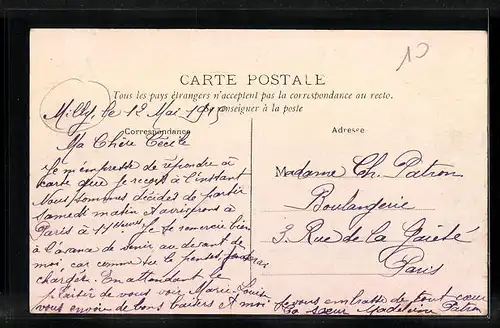 10
CARTE POSTALE
Tous les pays étrangers n'acceptent pas la correspondance au recto.
renseigner à la poste
Correspondance
Adresse
Milly, le 12 Mai
Ma Chère Cécile
Je m'empresse de répondre à
carte que je reçois à l'instant
Nous sommes décidés de partir
Samedi matin et arriverons à
Paris à 11 heures Je te remercie bien
à l'avance de venir au devant de
moi, car comme tu le penses,
chargée. En attendant le
plaisir de vous voir Marie Louise
vous envoie de bons baisers et moi
Je vous embrasse de tout cœur
Ta sœur Madeleine
Madame Ch. Patron
Boulangerie
3. Rue de la Gaieté
Paris